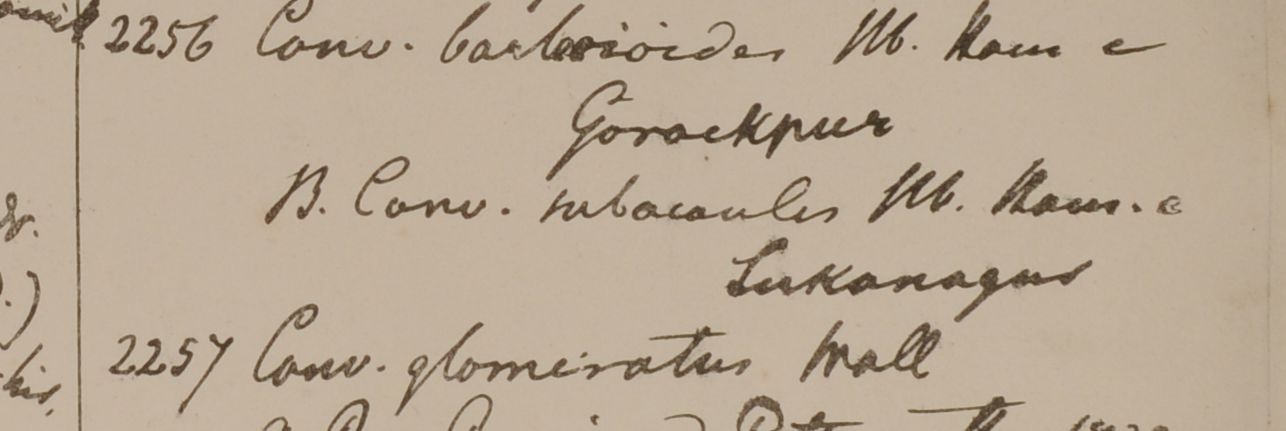 2256 Conv. barlerioides Hb. Ham e
Gorackpur
B. Conv. subacaulis Hb. Ham. e
Sukanagur
2257 Conv. glomeratus Wall